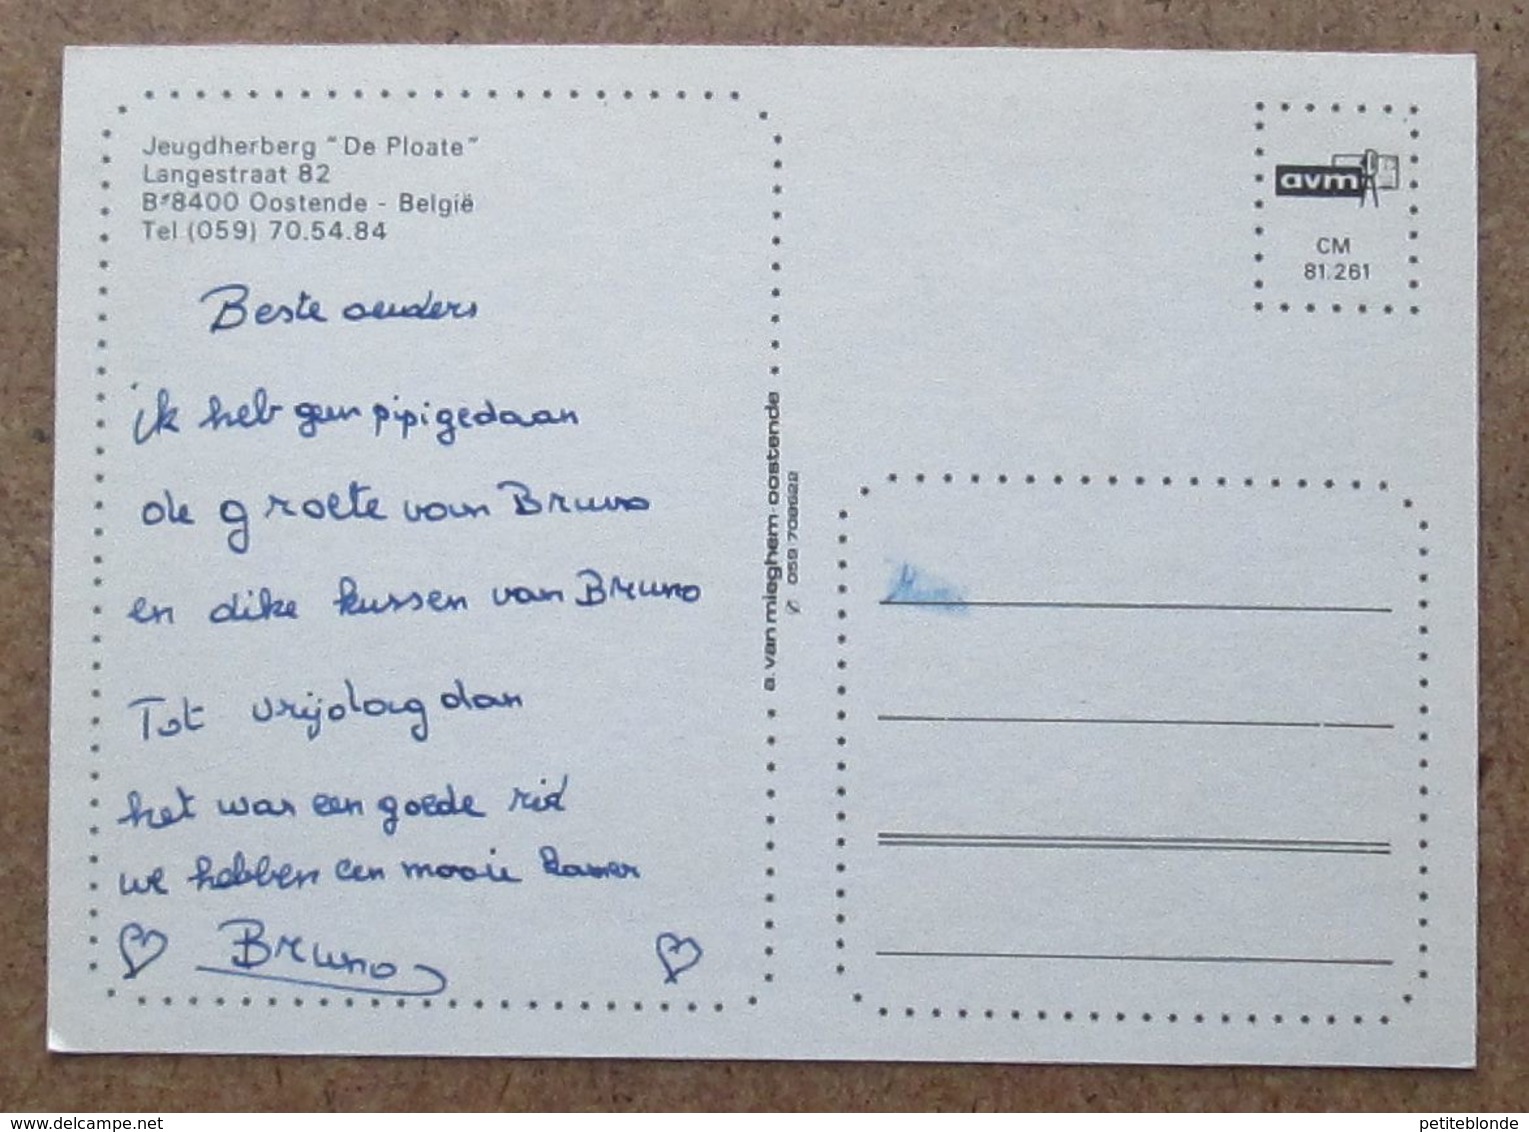 Jeugdherberg "De Ploate"
Langestraat 82
B-8400 Oostende - België
Tel (059) 70.54.84
Beste ouders
ik heb geen pipi gedaan
de groete van Bruno
en dike kussen van Bruno
Tot vrijdag dan
het was een goede rid
we hebben een mooie kamer
Bruno
a. van mieghem-oostende
059 708622
avm
CM
81.261
petiteblonde